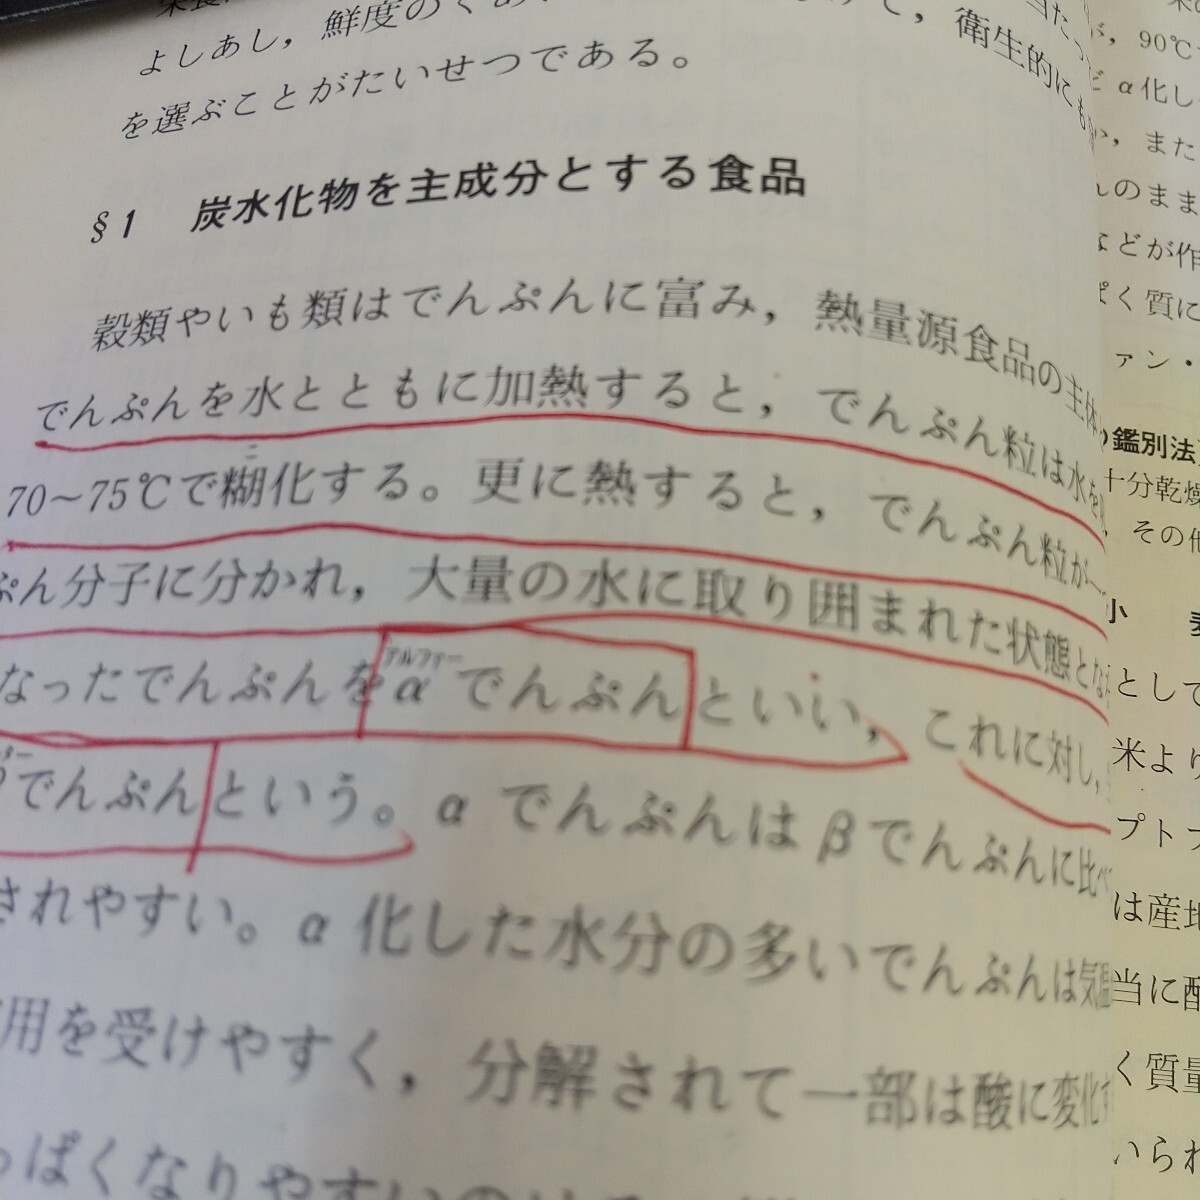 よしあし，鮮度の
衛生的にも
を選ぶことがたいせつである。
§1 炭水化物を主成分とする食品
穀類やいも類はでんぷんに富み，熱量源食品の主体
でんぷんを水とともに加熱すると，でんぷん粒は水を
70～75℃で糊化する。更に熱すると，でんぷん粒が
こ
ぷん分子に分かれ，大量の水に取り囲まれた状態とな
なったでんぷんをαでんぷんといい，これに対し，
アルファー
でんぷんという。αでんぷんはβでんぷんに比べ
されやすい。α化した水分の多いでんぷんは気温
用を受けやすく，分解されて一部は酸に変化す
っぱくなりやすい
が，90℃
α化し
い，また
んのまま
などが作
ぱく質に
ァン・
鑑別法
十分乾燥
，その他
小
として
米より
プトフ
は産地
当に配
く質量
いられ